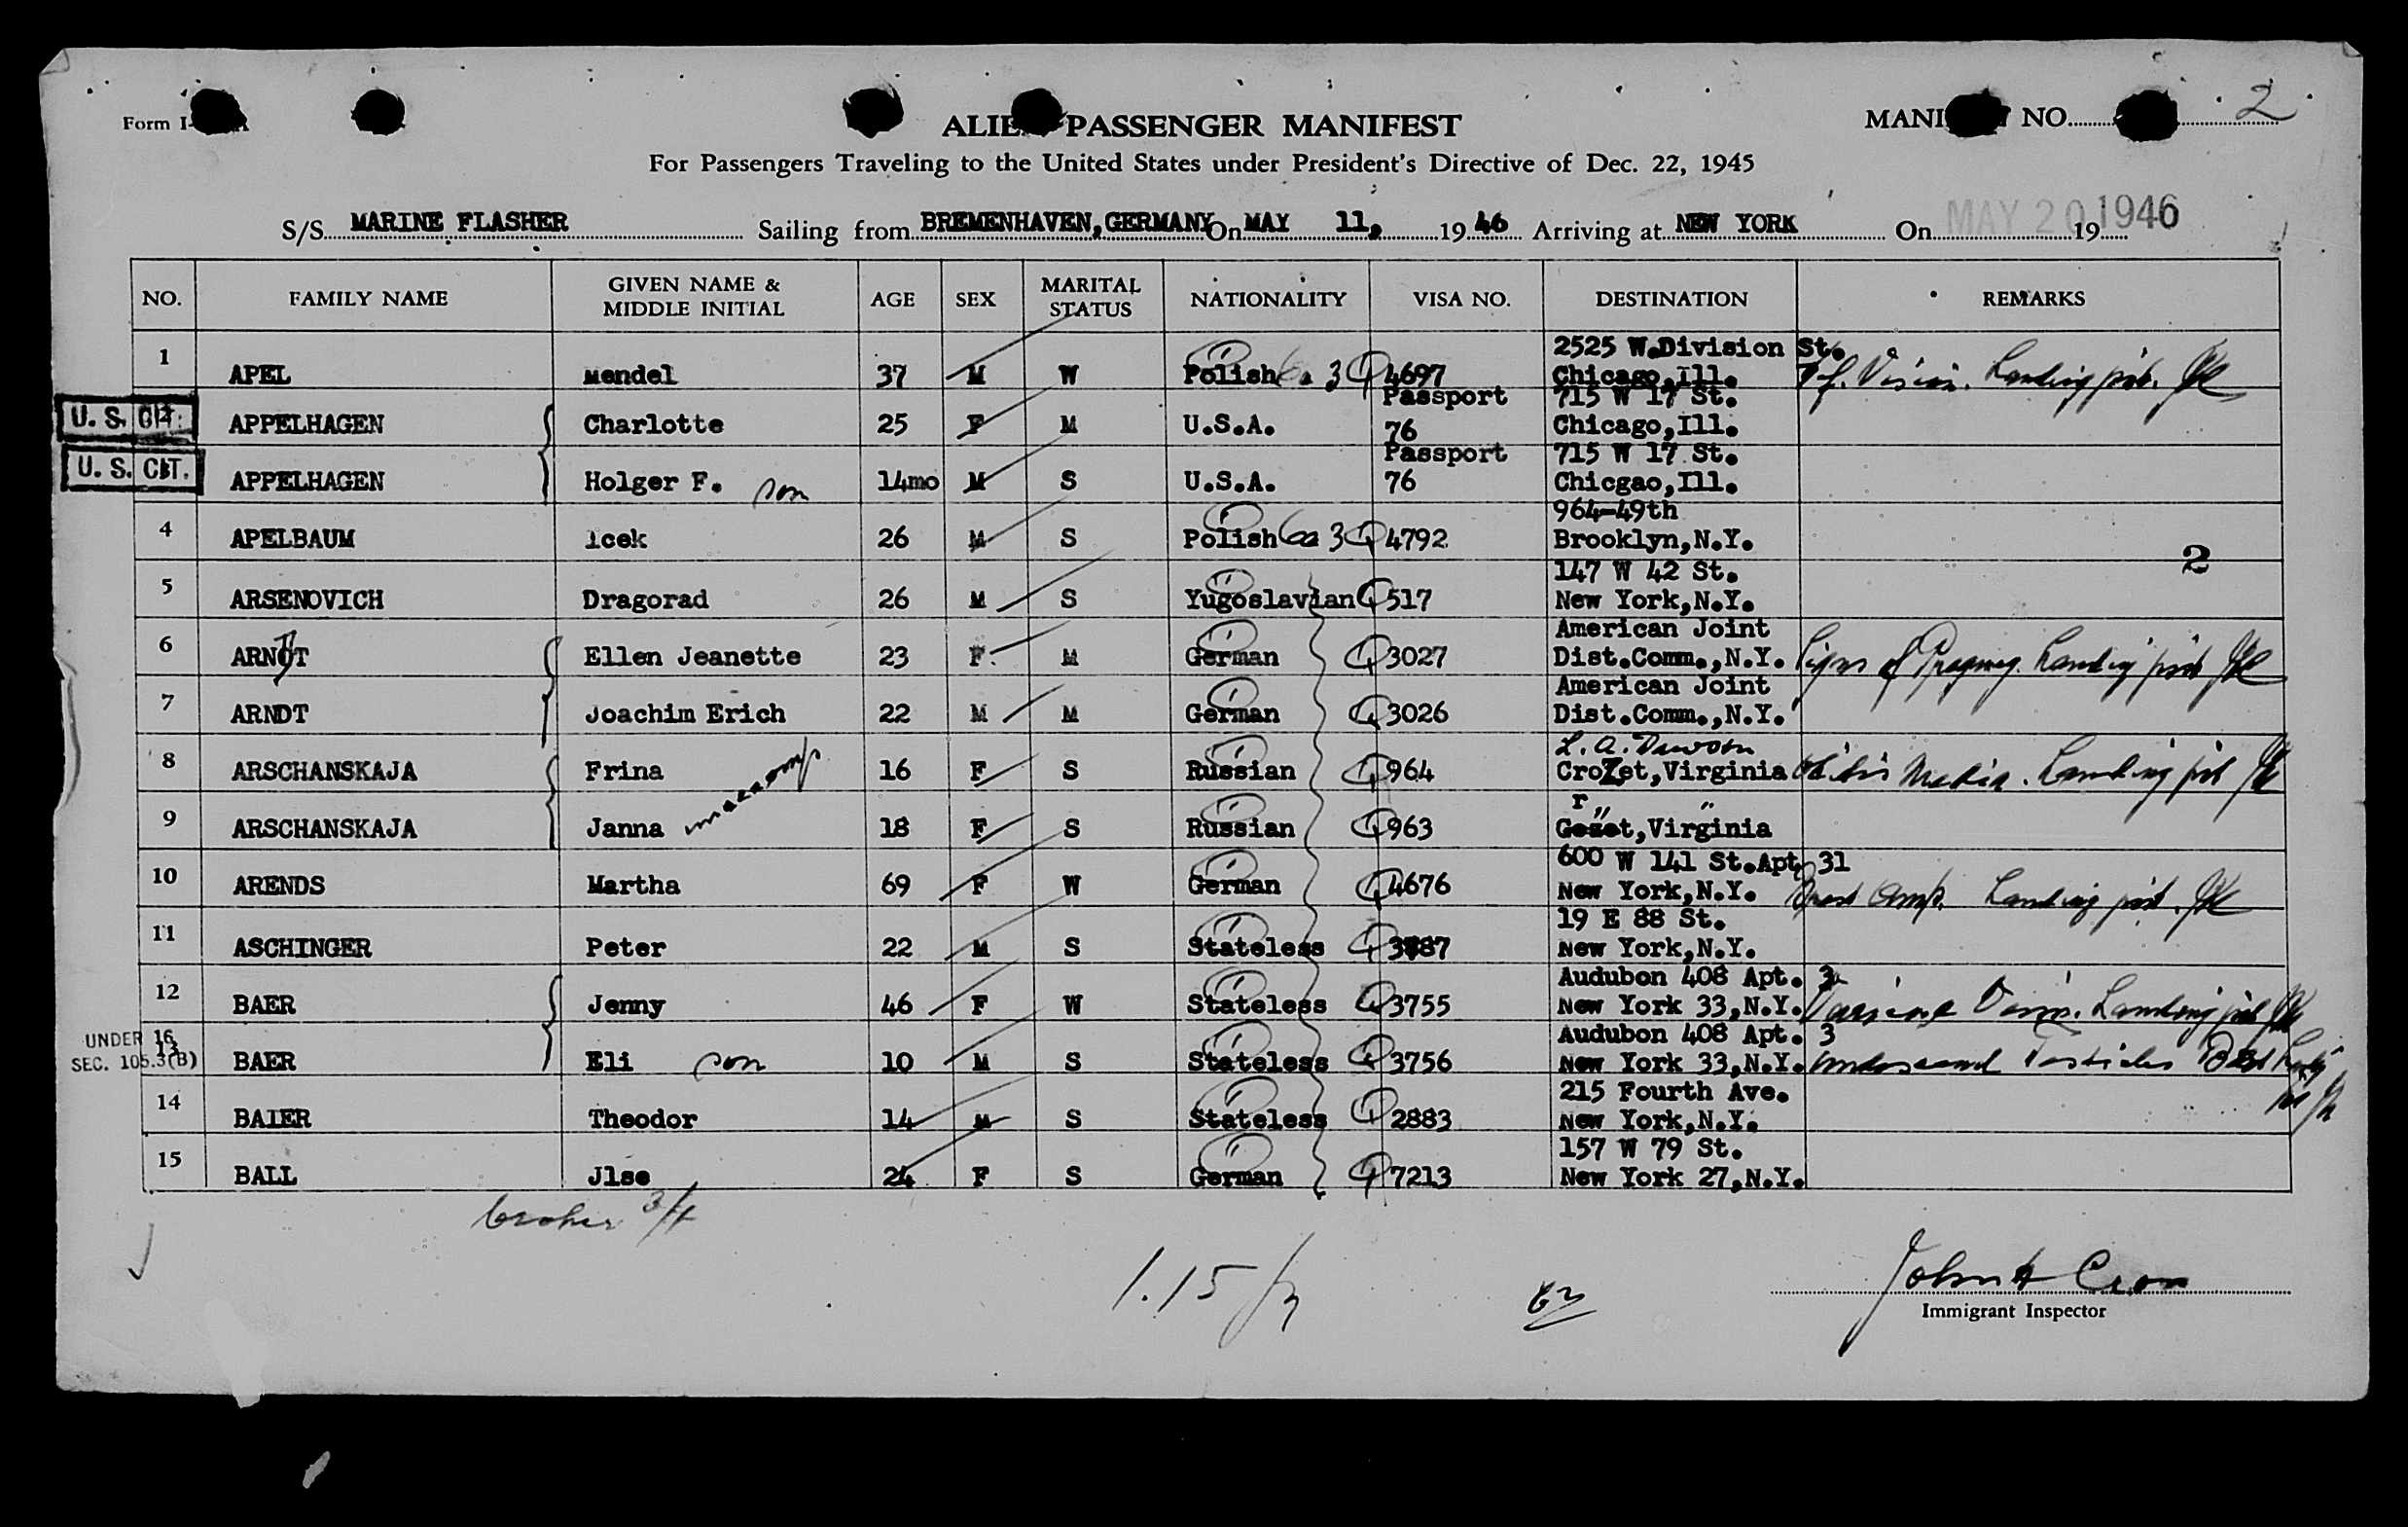 Form I-
ALIE PASSENGER MANIFEST
MANI NO. 2
For Passengers Traveling to the United States under President's Directive of Dec. 22, 1945
S/S MARINE FLASHER Sailing from BREMENHAVEN, GERMANY On MAY 11, 19 46 Arriving at NEW YORK On MAY 20 1946 19
NO. FAMILY NAME GIVEN NAME & MIDDLE INITIAL AGE SEX MARITAL STATUS NATIONALITY VISA NO. DESTINATION REMARKS
2525 W.Division St.
1 APEL Mendel 37 M W Polish 3 4697 Chicago,Ill. Vision. Landing
Passport 715 W 17 St.
U. S. CIT. APPELHAGEN Charlotte 25 F M U.S.A. 76 Chicago,Ill.
Passport 715 W 17 St.
U. S. CIT. APPELHAGEN Holger F. son 14mo M S U.S.A. 76 Chicgao,Ill.
964-49th
4 APELBAUM Icek 26 M S Polish 3 4792 Brooklyn,N.Y.
2
147 W 42 St.
5 ARSENOVICH Dragorad 26 M S Yugoslavian 517 New York,N.Y.
American Joint
6 ARNDT Ellen Jeanette 23 F M German 3027 Dist.Comm.,N.Y. Signs of Landing
American Joint
7 ARNDT Joachim Erich 22 M M German 3026 Dist.Comm.,N.Y.
L. A. Dawson
8 ARSCHANSKAJA Frina 16 F S Russian 964 CroZet,Virginia Otitis Media. Landing
r " "
9 ARSCHANSKAJA Janna unaccomp 18 F S Russian 963 Gozet,Virginia
600 W 141 St.Apt 31
10 ARENDS Martha 69 F W German 4676 New York,N.Y. Landing
19 E 88 St.
11 ASCHINGER Peter 22 M S Stateless 3787 New York,N.Y.
Audubon 408 Apt. 3
12 BAER Jenny 46 F W Stateless 3755 New York 33,N.Y. Veins. Landing
UNDER 16 Audubon 408 Apt. 3
SEC. 105.3(B) 13 BAER Eli son 10 M S Stateless 3756 New York 33,N.Y. Testicles
215 Fourth Ave.
14 BAIER Theodor 14 M S Stateless 2883 New York,N.Y.
157 W 79 St.
15 BALL Jlse 24 F S German 7213 New York 27,N.Y.
1.15
John
Immigrant Inspector